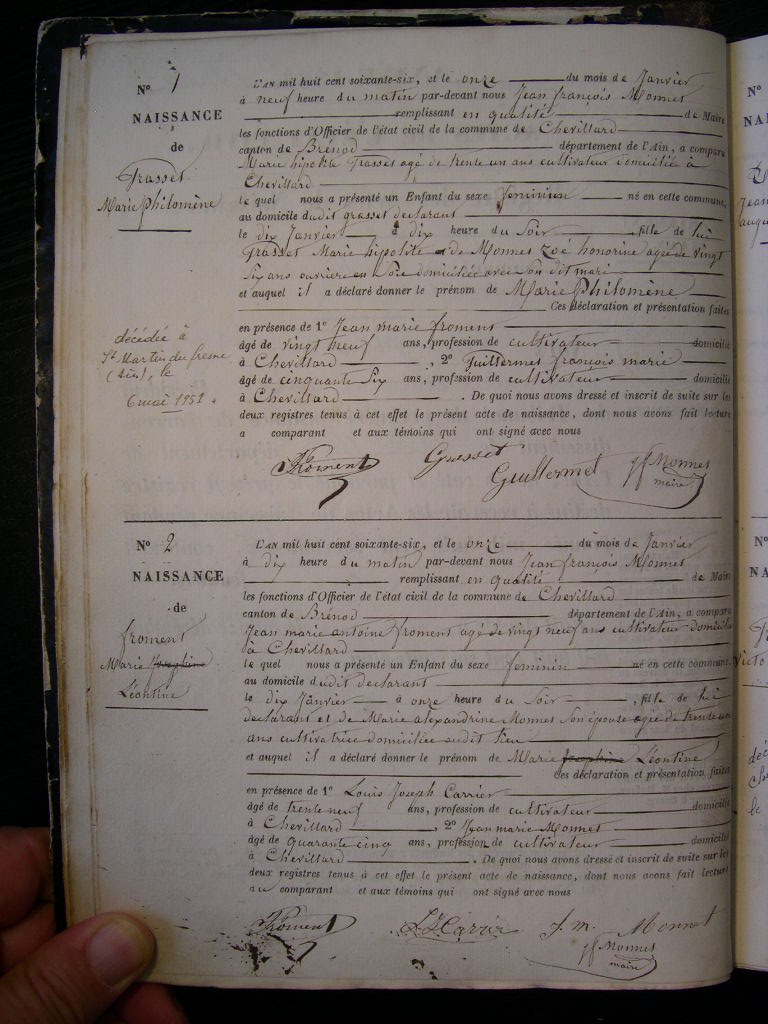 N° 1
NAISSANCE
de
Grasset
Marie Philomène
décédée à
St Martin du fresne
(Ain), le
6 mai 1951.
L'AN mil huit cent soixante-six, et le onze du mois de Janvier
à neuf heure du matin par-devant nous Jean françois Monnet
remplissant en qualité de Maire
les fonctions d'Officier de l'état civil de la commune de Chevillard
canton de Brénod département de l'Ain, a comparu
Marie hipolite Grasset agé de trente un ans cultivateur domicilié à
Chevillard
le quel nous a présenté un Enfant du sexe feminin né en cette commune,
au domicile dudit grasset declarant
le dix Janvier à dix heure du Soir, fille de lui
Grasset Marie hipolite et de Monnet Zoé honorine agée de vingt
six ans ouvriere en soie domiciliée avec son dit mari
et auquel il a déclaré donner le prénom de Marie Philomène
Ces déclaration et présentation faites
en présence de 1° Jean marie froment
âgé de vingt neuf ans, profession de cultivateur domicilié
à Chevillard, 2° Guillermet françois marie
âgé de cinquante six ans, profession de cultivateur domicilié
à Chevillard. De quoi nous avons dressé et inscrit de suite sur les
deux registres tenus à cet effet le présent acte de naissance, dont nous avons fait lecture
a comparant et aux témoins qui ont signé avec nous
Froment Grasset Guillermet jf Monnet
maire
N° 2
NAISSANCE
de
froment
Marie Josephine
Léontine
L'AN mil huit cent soixante-six, et le onze du mois de Janvier
à dix heure du matin par-devant nous Jean françois Monnet
remplissant en qualité de Maire
les fonctions d'Officier de l'état civil de la commune de Chevillard
canton de Brénod département de l'Ain, a comparu
Jean marie antoine froment agé de vingt neuf ans cultivateur domicilié
à Chevillard
le quel nous a présenté un Enfant du sexe feminin né en cette commune,
au domicile dudit declarant
le dix Janvier à onze heure du Soir, fille de lui
declarant et de Marie alexandrine Monnet son épouse agée de trente un
ans cultivatrice domiciliée audit lieu
et auquel il a déclaré donner le prénom de Marie Josephine Léontine
Ces déclaration et présentation faites
en présence de 1° Louis Joseph Carrier
âgé de trente neuf ans, profession de cultivateur domicilié
à Chevillard, 2° Jean marie Monnet
âgé de quarante cinq ans, profession de cultivateur domicilié
à Chevillard. De quoi nous avons dressé et inscrit de suite sur les
deux registres tenus à cet effet le présent acte de naissance, dont nous avons fait lecture
au comparant et aux témoins qui ont signé avec nous
Froment L J Carrier J. m. Monnet
jf Monnet
maire